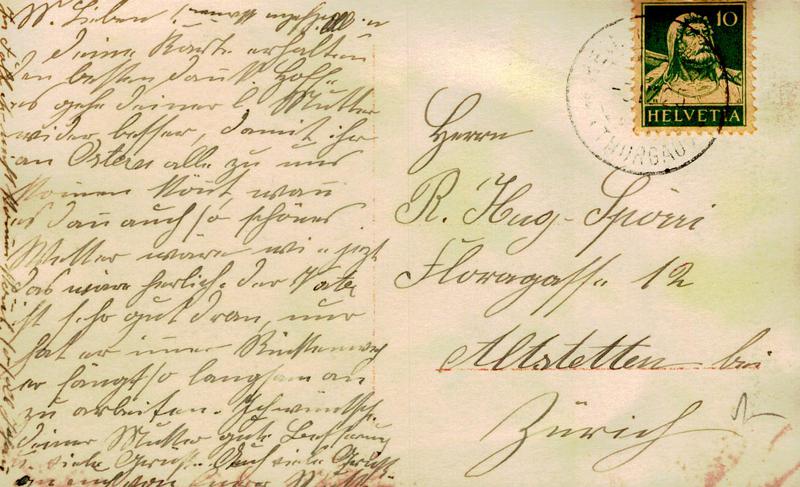 M. Lieben!
deine Karte erhalten
den besten Dank. Hoffe
es gehe deiner l. Mutter
wider besser, damit ihr
an Ostern alle zu uns
komen könt, wan
es dan auch so schönes
Wetter wäre wie jezt
das wäre herlich. der Vater
ist so gut dran, nur
hat er imer Rückenweh
er fängt so langsam an
zu arbeiten. Ich wünsche
deiner Mutter gute Besserung
u. viele Grüsse. Auch viele Grüsse
an euch von
10
HELVETIA
(THURGAU)
Herrn
R. Hug-Spörri
Floragasse 12
Altstetten bei
Zürich